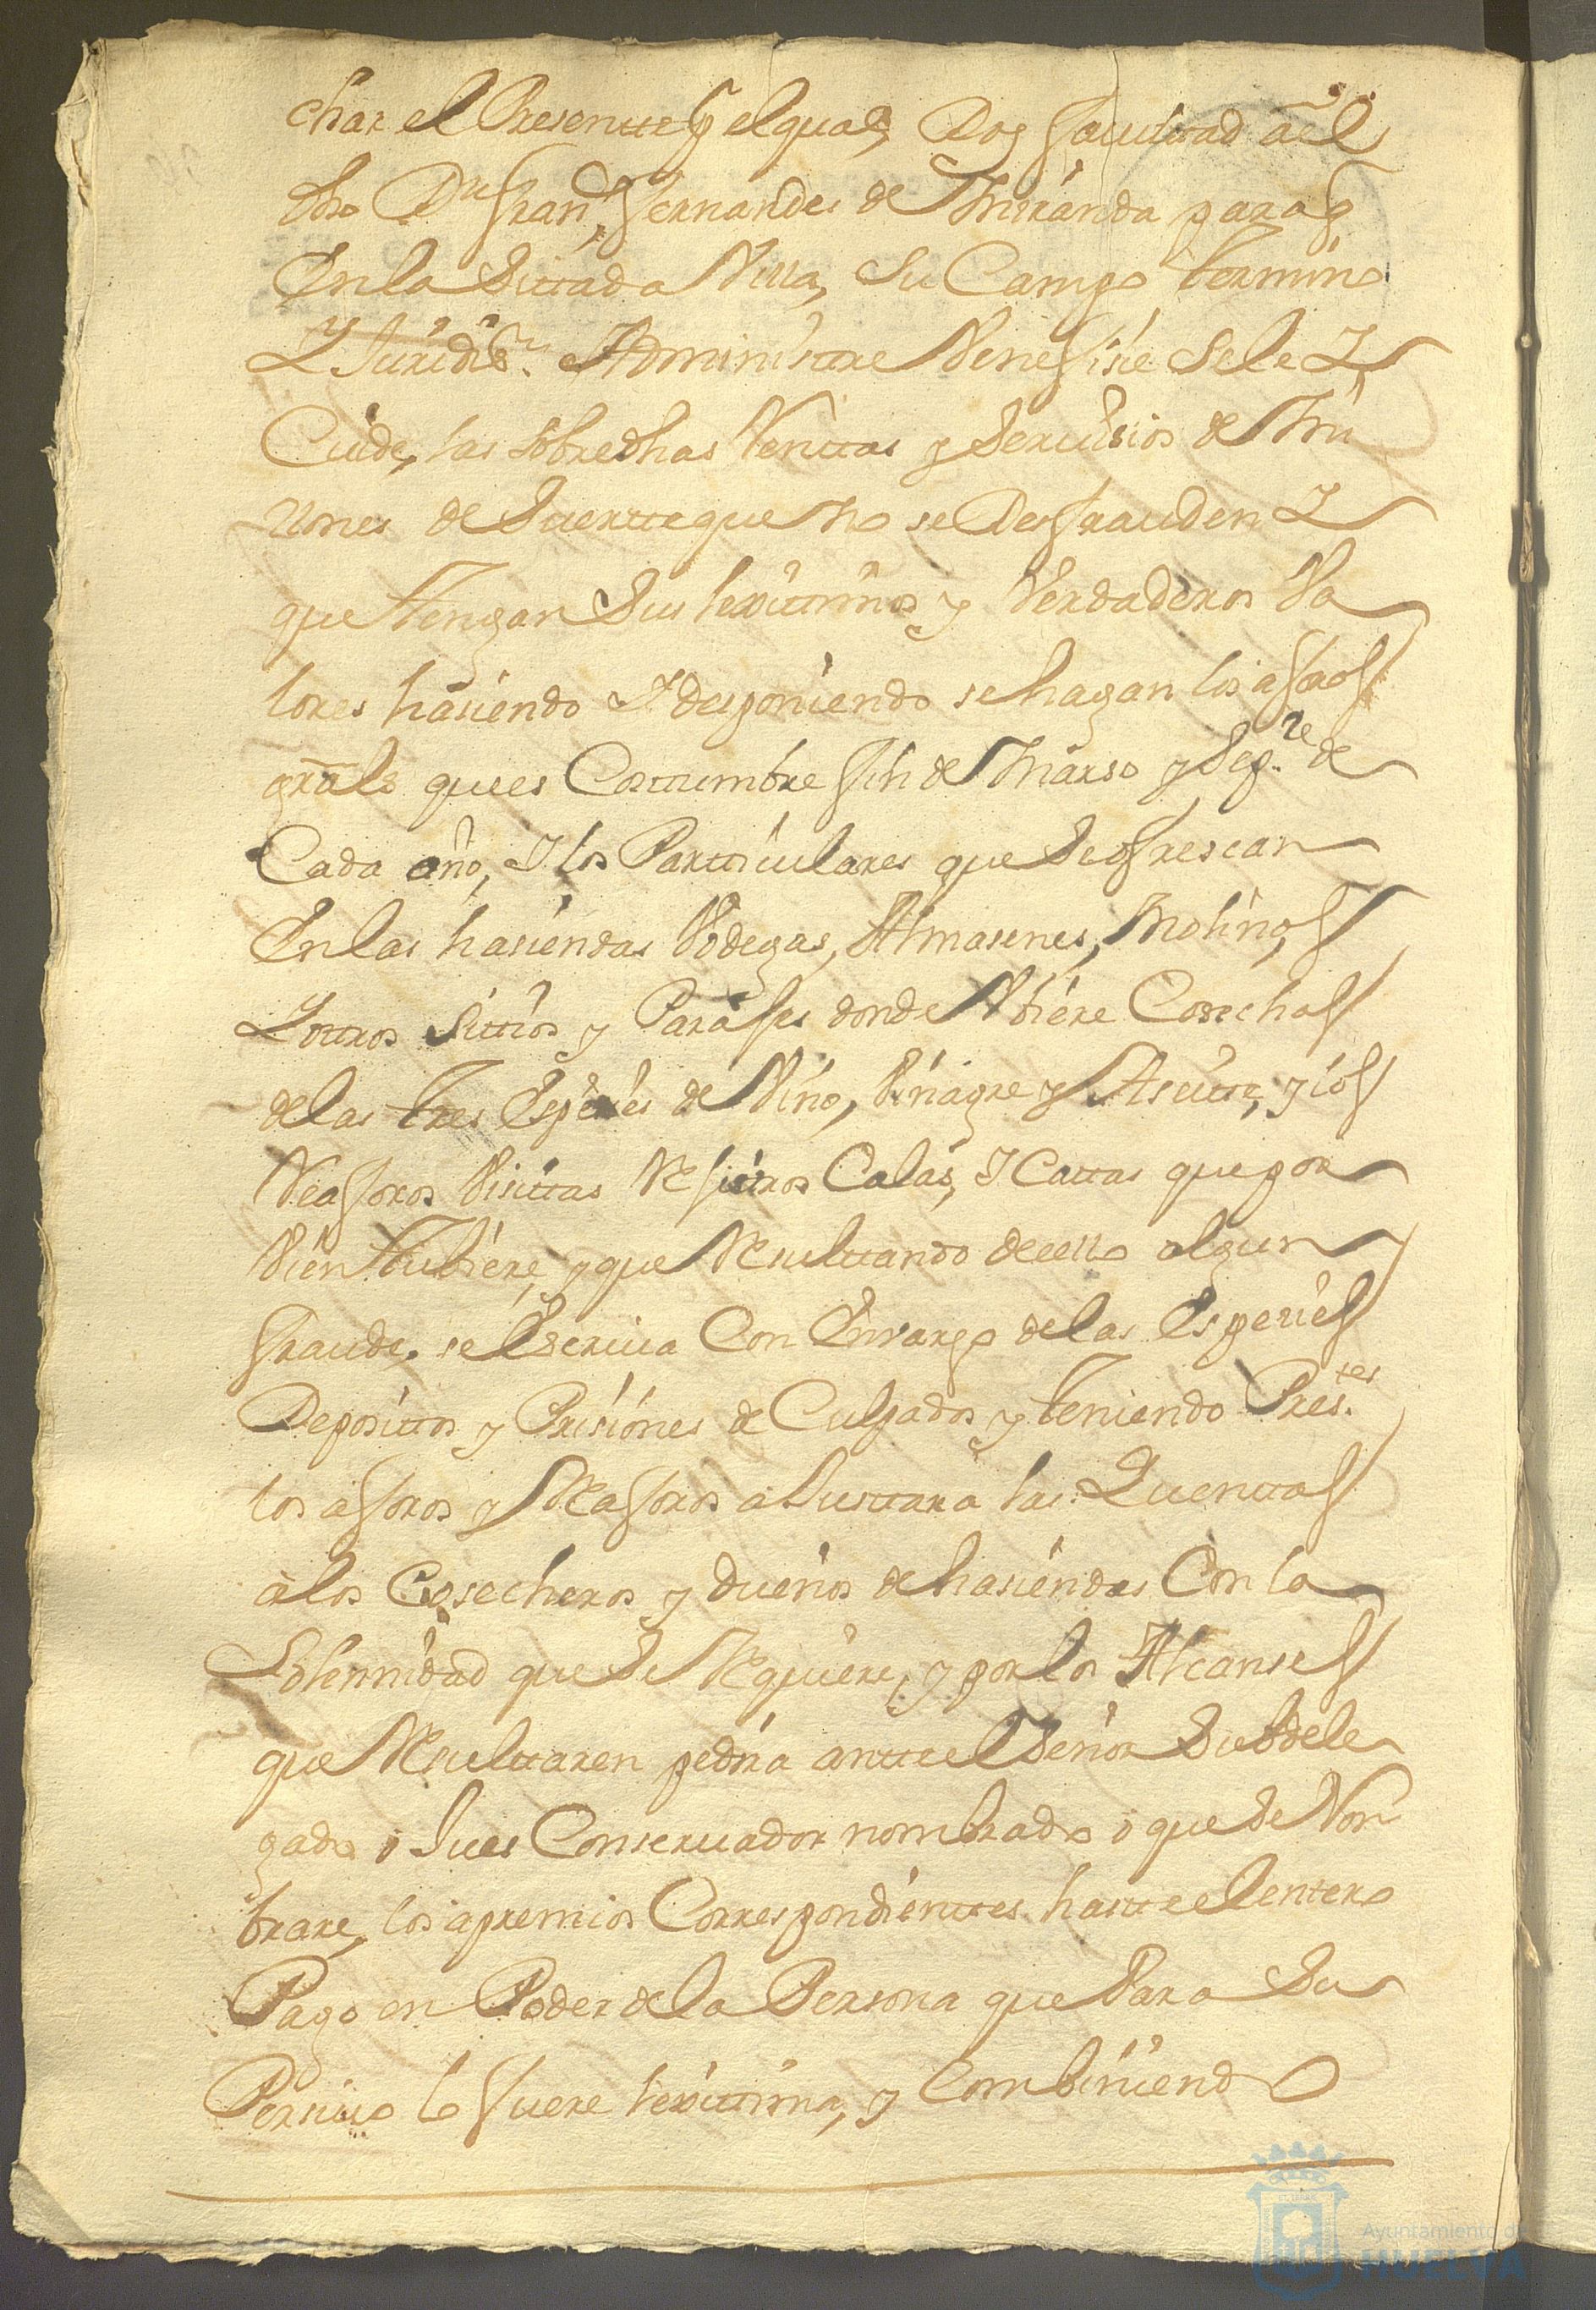 char el Presente pr el qual, Doy facultad a el
dho Dn Franco Fernandes de Miranda para q
En la Sittada Villa, Su Campo termino
Y Juridisn. Administre Venefisie Sele Y
Cuide, las sobredhas Renttas y Servisios de Mi
llones de Suertte que no se Desfrauden Y
que Tengan Sus lexittimos y Verdaderos Va
lores hasiendo Y desponiendo se hagan los aforos
grales que es Costtumbre fin de Marso y Sepre. de
Cada año, Y los Partticulares que Se ofrescan
En las hasiendas Vodegas, Almasenes, Molinos
Y ottros Sittios y Parajes donde Vbiere Cosechas
de las tres Espesies de Vino, Vinagre y Aseitte, y los
Reaforos Visittas Rejittros Calas, Y Cattas que por
Vien Tubiere, y que Resulttando de ello algun
fraude, se Escriva Con Envargo de las Espesies
Deposittos y Prisiones de Culpados y teniendo Prestes.
los aforos y Reaforos aJusttara las Quenttas
a los Cosecheros y dueños de hasiendas Con la
Solemnidad que Se Requiere, y por los Alcanses
que Resulttaren pedira antte el Señor Subdele
gado o Jues Conservador nombrado o que Se Nom
brare, los apremios Correspondienttes hastte el entero
Pago en Poder de la Persona que Para Su
Persivo lo fuere lexittima, y Combiniendo
Ayuntamiento de
HUELVA